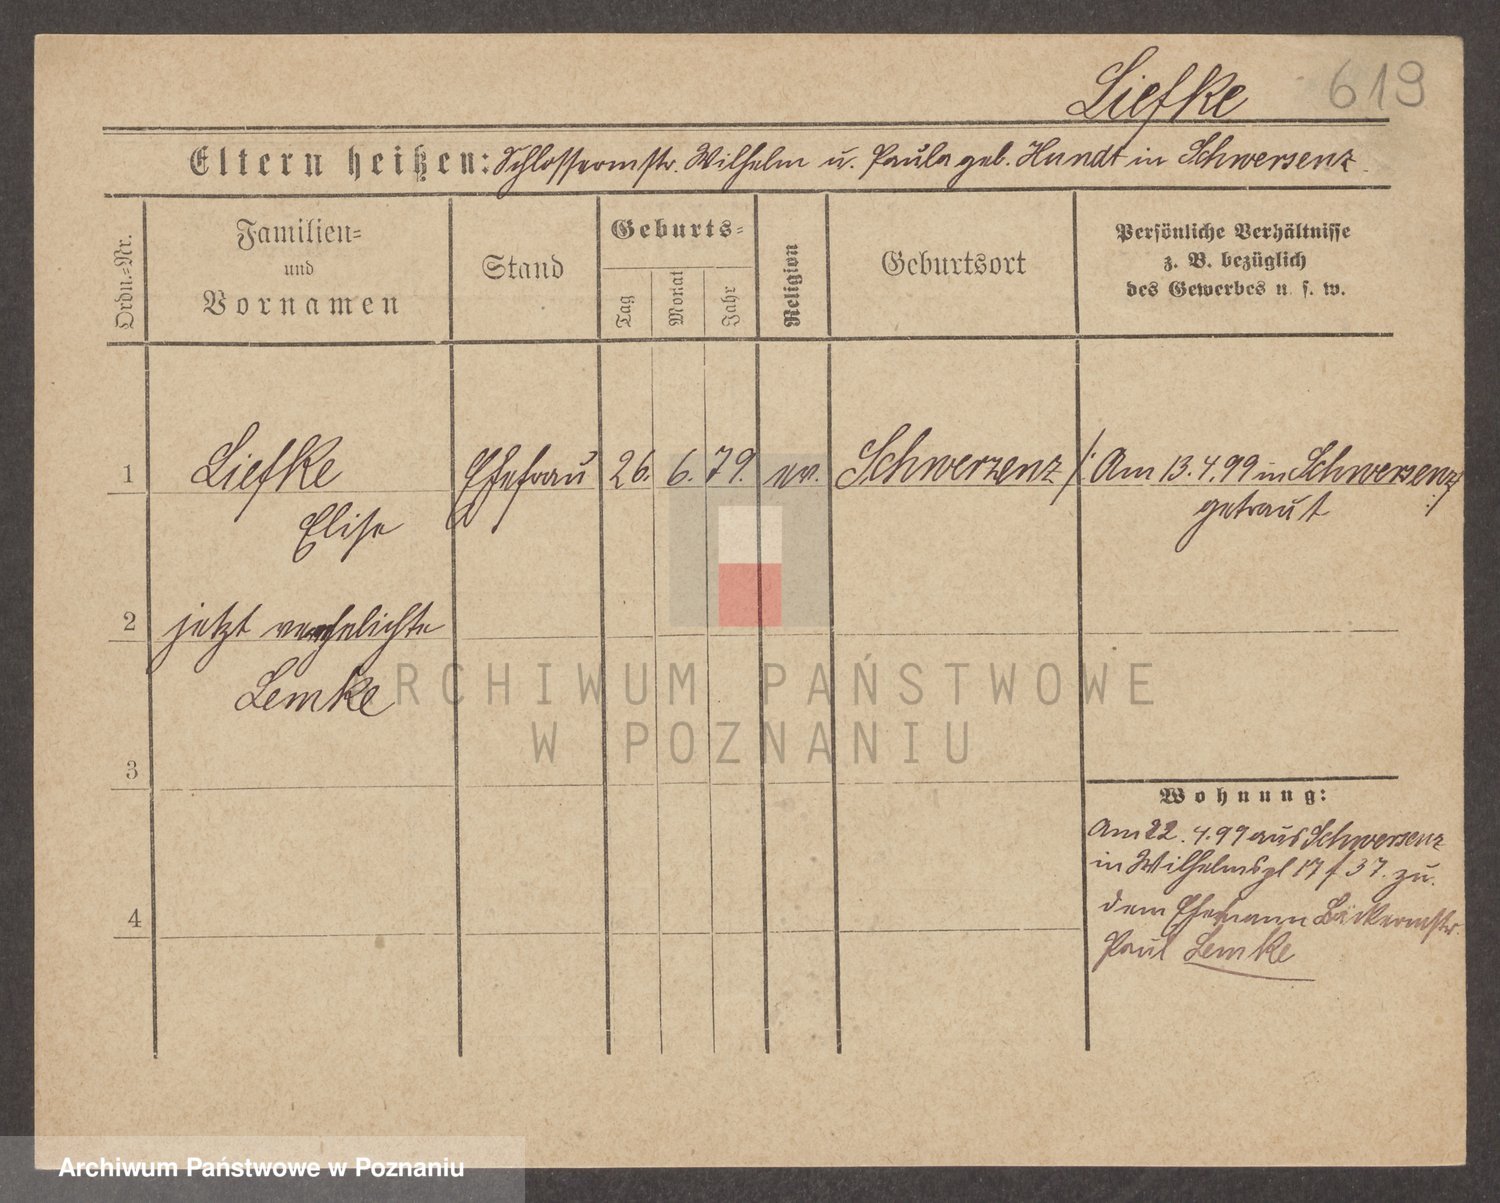 Liefke 619
Eltern heißen: Schlossermstr. Wilhelm u. Paula geb. Hundt in Schwersenz.
Ordn.=Nr.
Familien=
und
Vornamen
Stand
Geburts=
Tag
Monat
Jahr
Religion
Geburtsort
Persönliche Verhältnisse
z. B. bezüglich
des Gewerbes u. s. w.
1 Liefke Ehefrau 26. 6. 79. ev. Schwerzenz /: Am 13.4.99 in Schwersenz
Elise getraut :/
2 jetzt verehelichte
Lemke
ARCHIWUM PAŃSTWOWE
W POZNANIU
3
Wohnung:
Am 22.4.99 aus Schwersenz
in Wilhelmspl 17 f 37. zu.
4 dem Ehemann Bäckermstr.
Paul Lemke
Archiwum Państwowe w Poznaniu